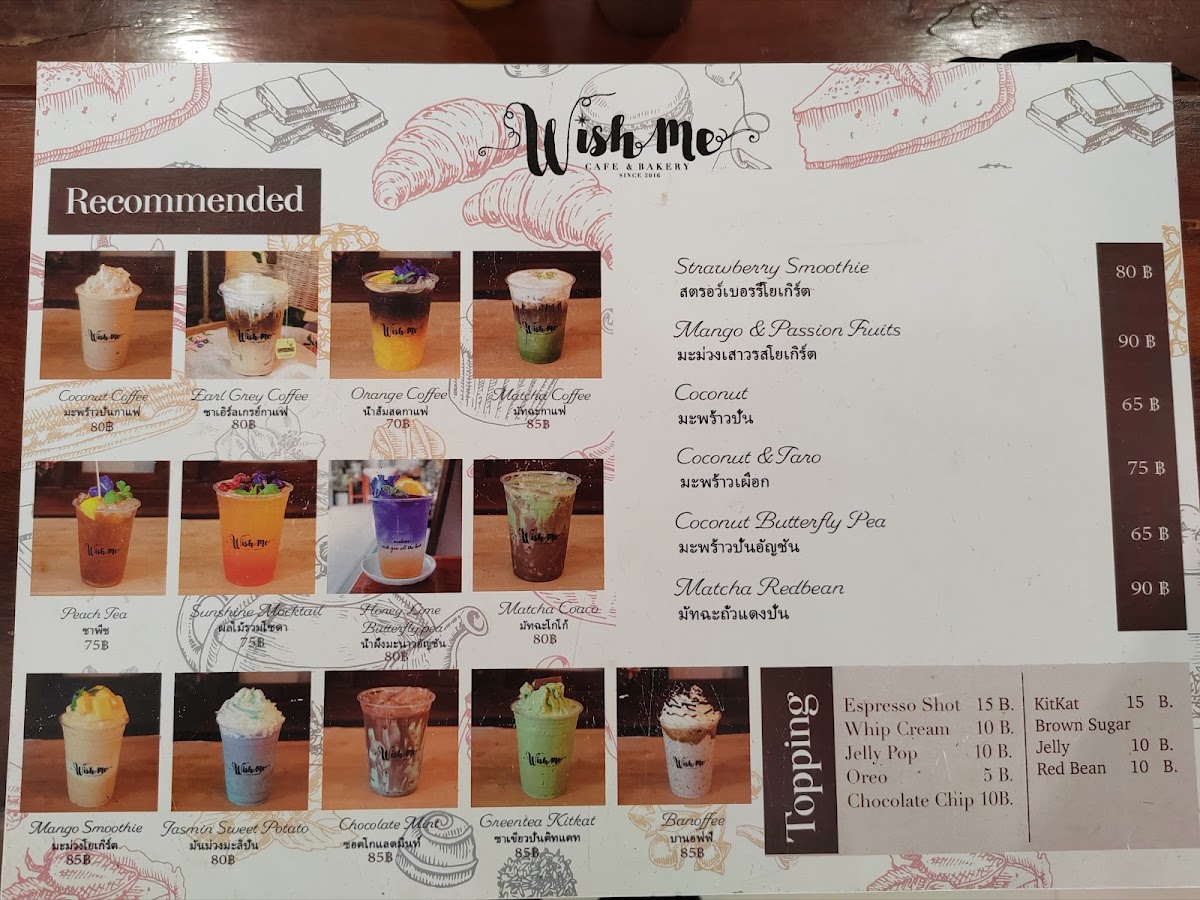 Wish Me
CAFE & BAKERY
SINCE 2016
Recommended
Wish Me
Wish Me
Wish Me
Wish Me
Coconut Coffee
มะพร้าวปั่นกาแฟ
80฿
Earl Grey Coffee
ชาเอิร์ลเกรย์กาแฟ
80฿
Orange Coffee
น้ำส้มสดกาแฟ
70฿
Matcha Coffee
มัทฉะกาแฟ
85฿
Wish Me
Wish Me
Wish Me
Peach Tea
ชาพีช
75฿
Sunshine Mocktail
ผลไม้รวมโซดา
75฿
Honey Lime
Butterfly pea
น้ำผึ้งมะนาวอัญชัน
80฿
Matcha Coaco
มัทฉะโกโก้
80฿
Wish Me
Wish Me
Wish Me
Wish Me
Wish Me
Mango Smoothie
มะม่วงโยเกิร์ต
85฿
Jasmin Sweet Potato
มันม่วงมะลิปั่น
80฿
Chocolate Mint
ชอคโกแลตมิ้นท์
85฿
Greentea Kitkat
ชาเขียวปั่นคิทแคท
85฿
Banoffee
บานอฟฟี่
85฿
Strawberry Smoothie 80 ฿
สตรอว์เบอร์รี่โยเกิร์ต
Mango & Passion Fruits 90 ฿
มะม่วงเสาวรสโยเกิร์ต
Coconut 65 ฿
มะพร้าวปั่น
Coconut & Taro 75 ฿
มะพร้าวเผือก
Coconut Butterfly Pea 65 ฿
มะพร้าวปั่นอัญชัน
Matcha Redbean 90 ฿
มัทฉะถั่วแดงปั่น
Topping
Espresso Shot 15 B.
Whip Cream 10 B.
Jelly Pop 10 B.
Oreo 5 B.
Chocolate Chip 10B.
KitKat 15 B.
Brown Sugar
Jelly 10 B.
Red Bean 10 B.